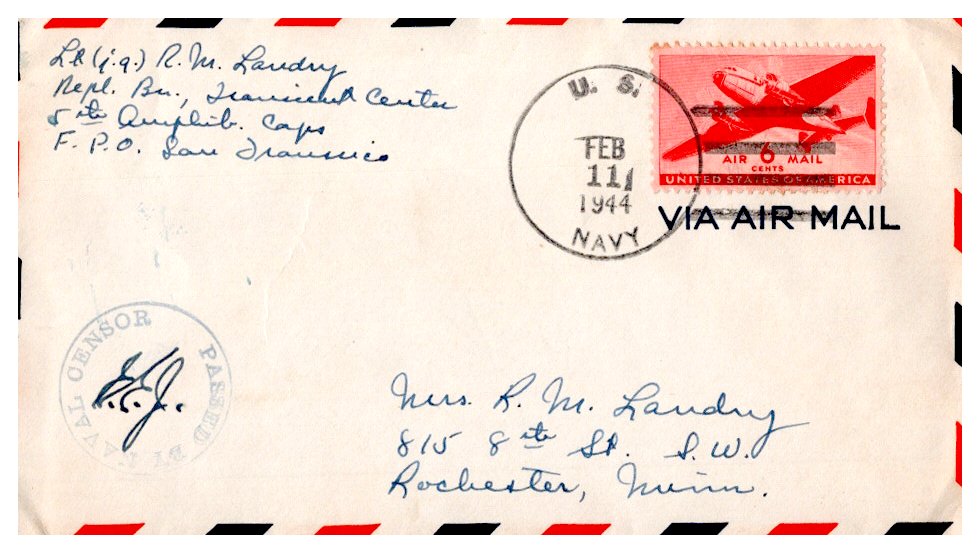 Lt (j.g.) R. M. Landry
Repl. Bn., Transient Center
5th Amphib. Corps
F. P. O. San Francisco
U. S.
FEB
11
1944
NAVY
AIR 6 MAIL
CENTS
UNITED STATES OF AMERICA
VIA AIR MAIL
PASSED BY NAVAL CENSOR
Mrs. R. M. Landry
815 8th St. S.W.
Rochester, Minn.